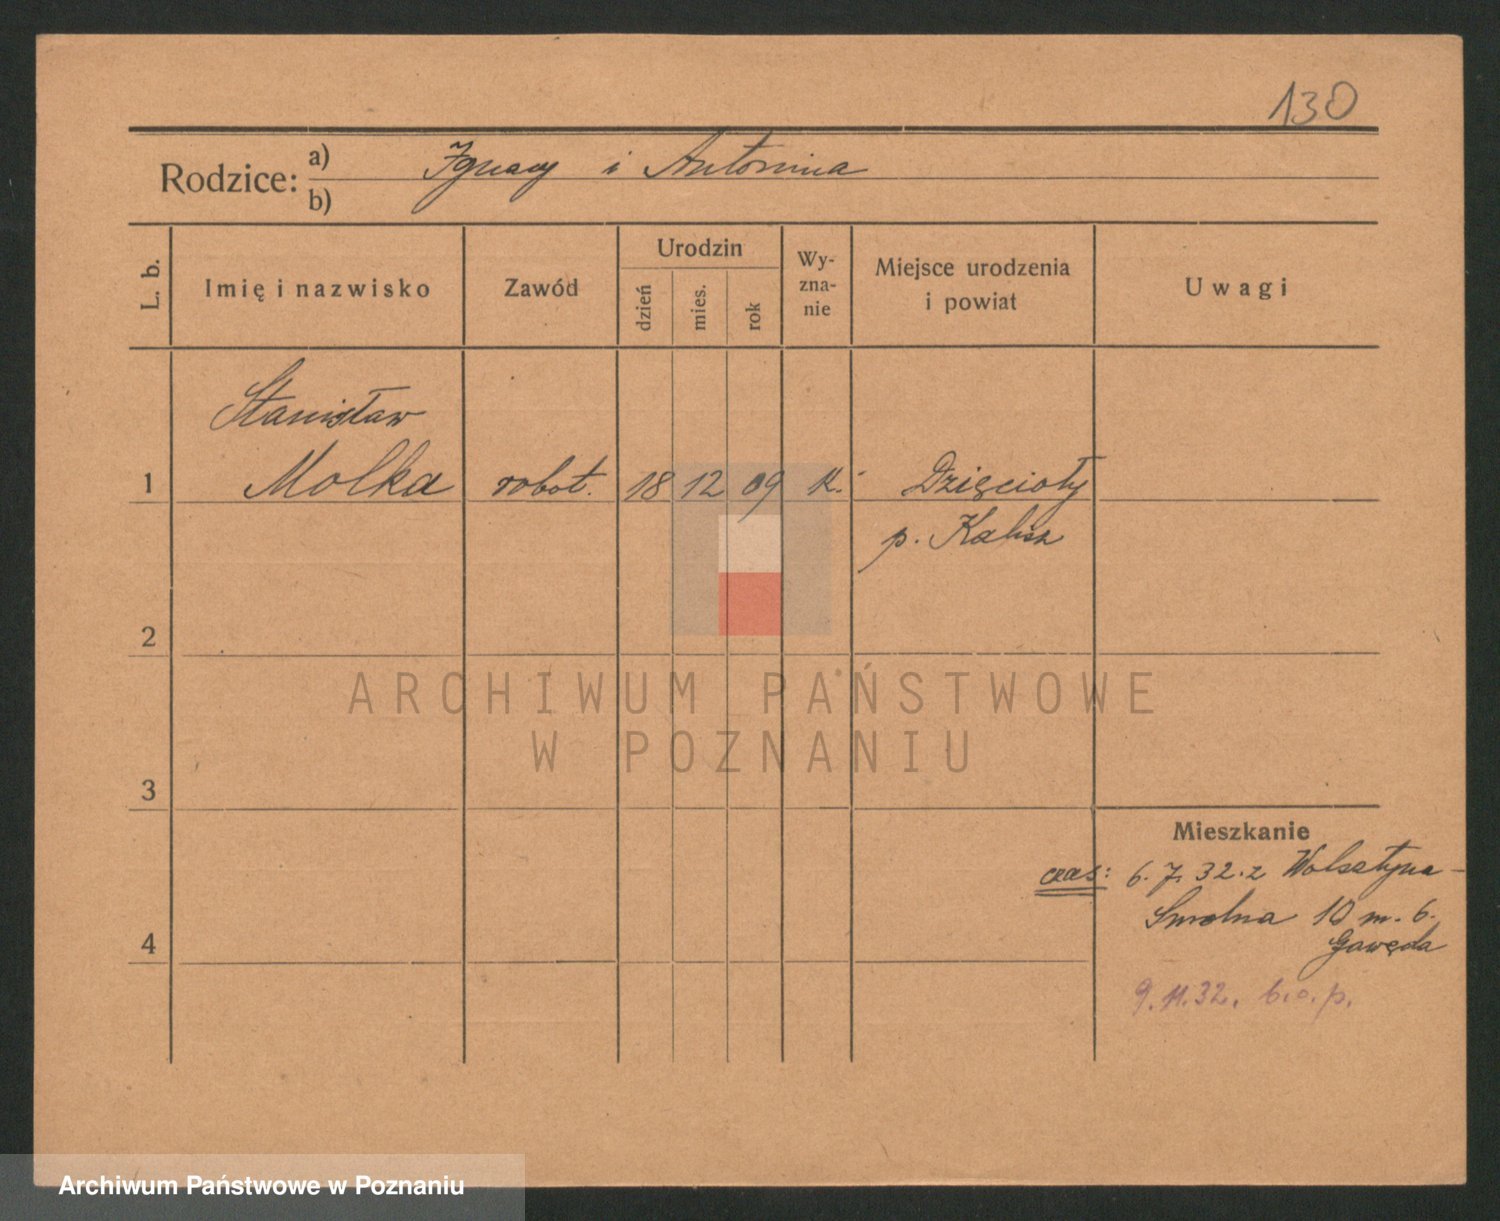 130
Rodzice: a) Ignacy i Antonina
b)
L. b.
Imię i nazwisko
Zawód
Urodzin
dzień
mies.
rok
Wy-
zna-
nie
Miejsce urodzenia
i powiat
Uwagi
Stanisław
1 Molka robot. 18 12 09 K. Dzięcioły
p. Kalisz
2
ARCHIWUM PAŃSTWOWE
W POZNANIU
3
Mieszkanie
czas: 6. 7. 32. z Wolsztyna -
Smolna 10 m. 6.
Gawęda
4
9. 11. 32. b.o.p.
Archiwum Państwowe w Poznaniu